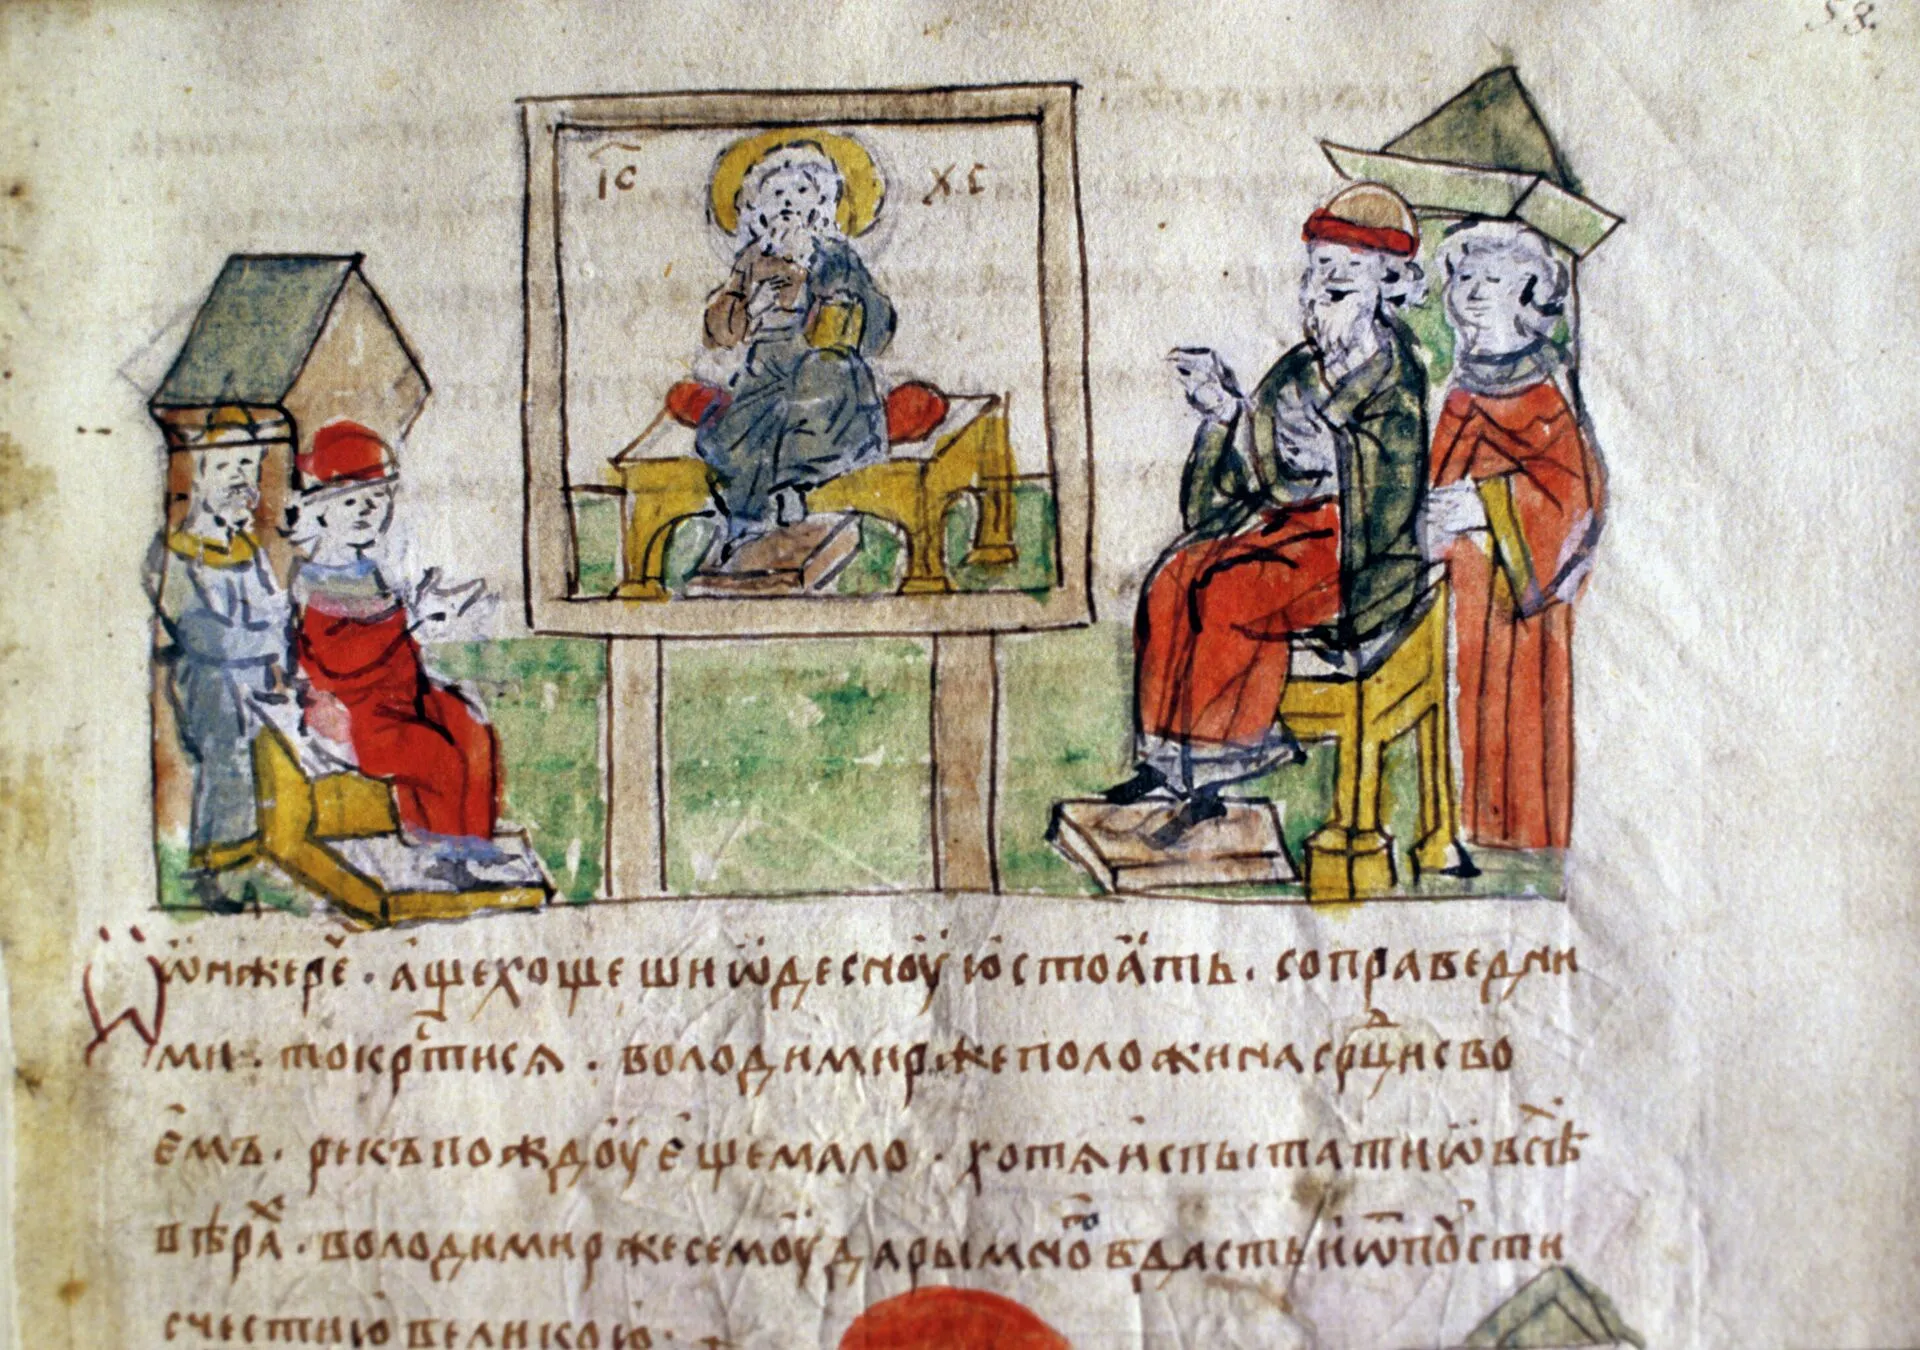 58.
І҃С ХС
ѿ̈нжере҃ · а҆щехоще шиѿдесноу҆ю҆стоа҆ть · соправедни
ми · токрⷭ҇тисѧ · володимиржеположинасрⷣцисво
є҆мъ · рекъпождоу҆є҆щемало · хотѧи҆спытатиѿвсѣⷯ
вѣраⷯ · володимиржесемоу҆дарымноⷢ҇вдастьи҆ѿпоⷭ҇сти
счестнїю҆великою ·